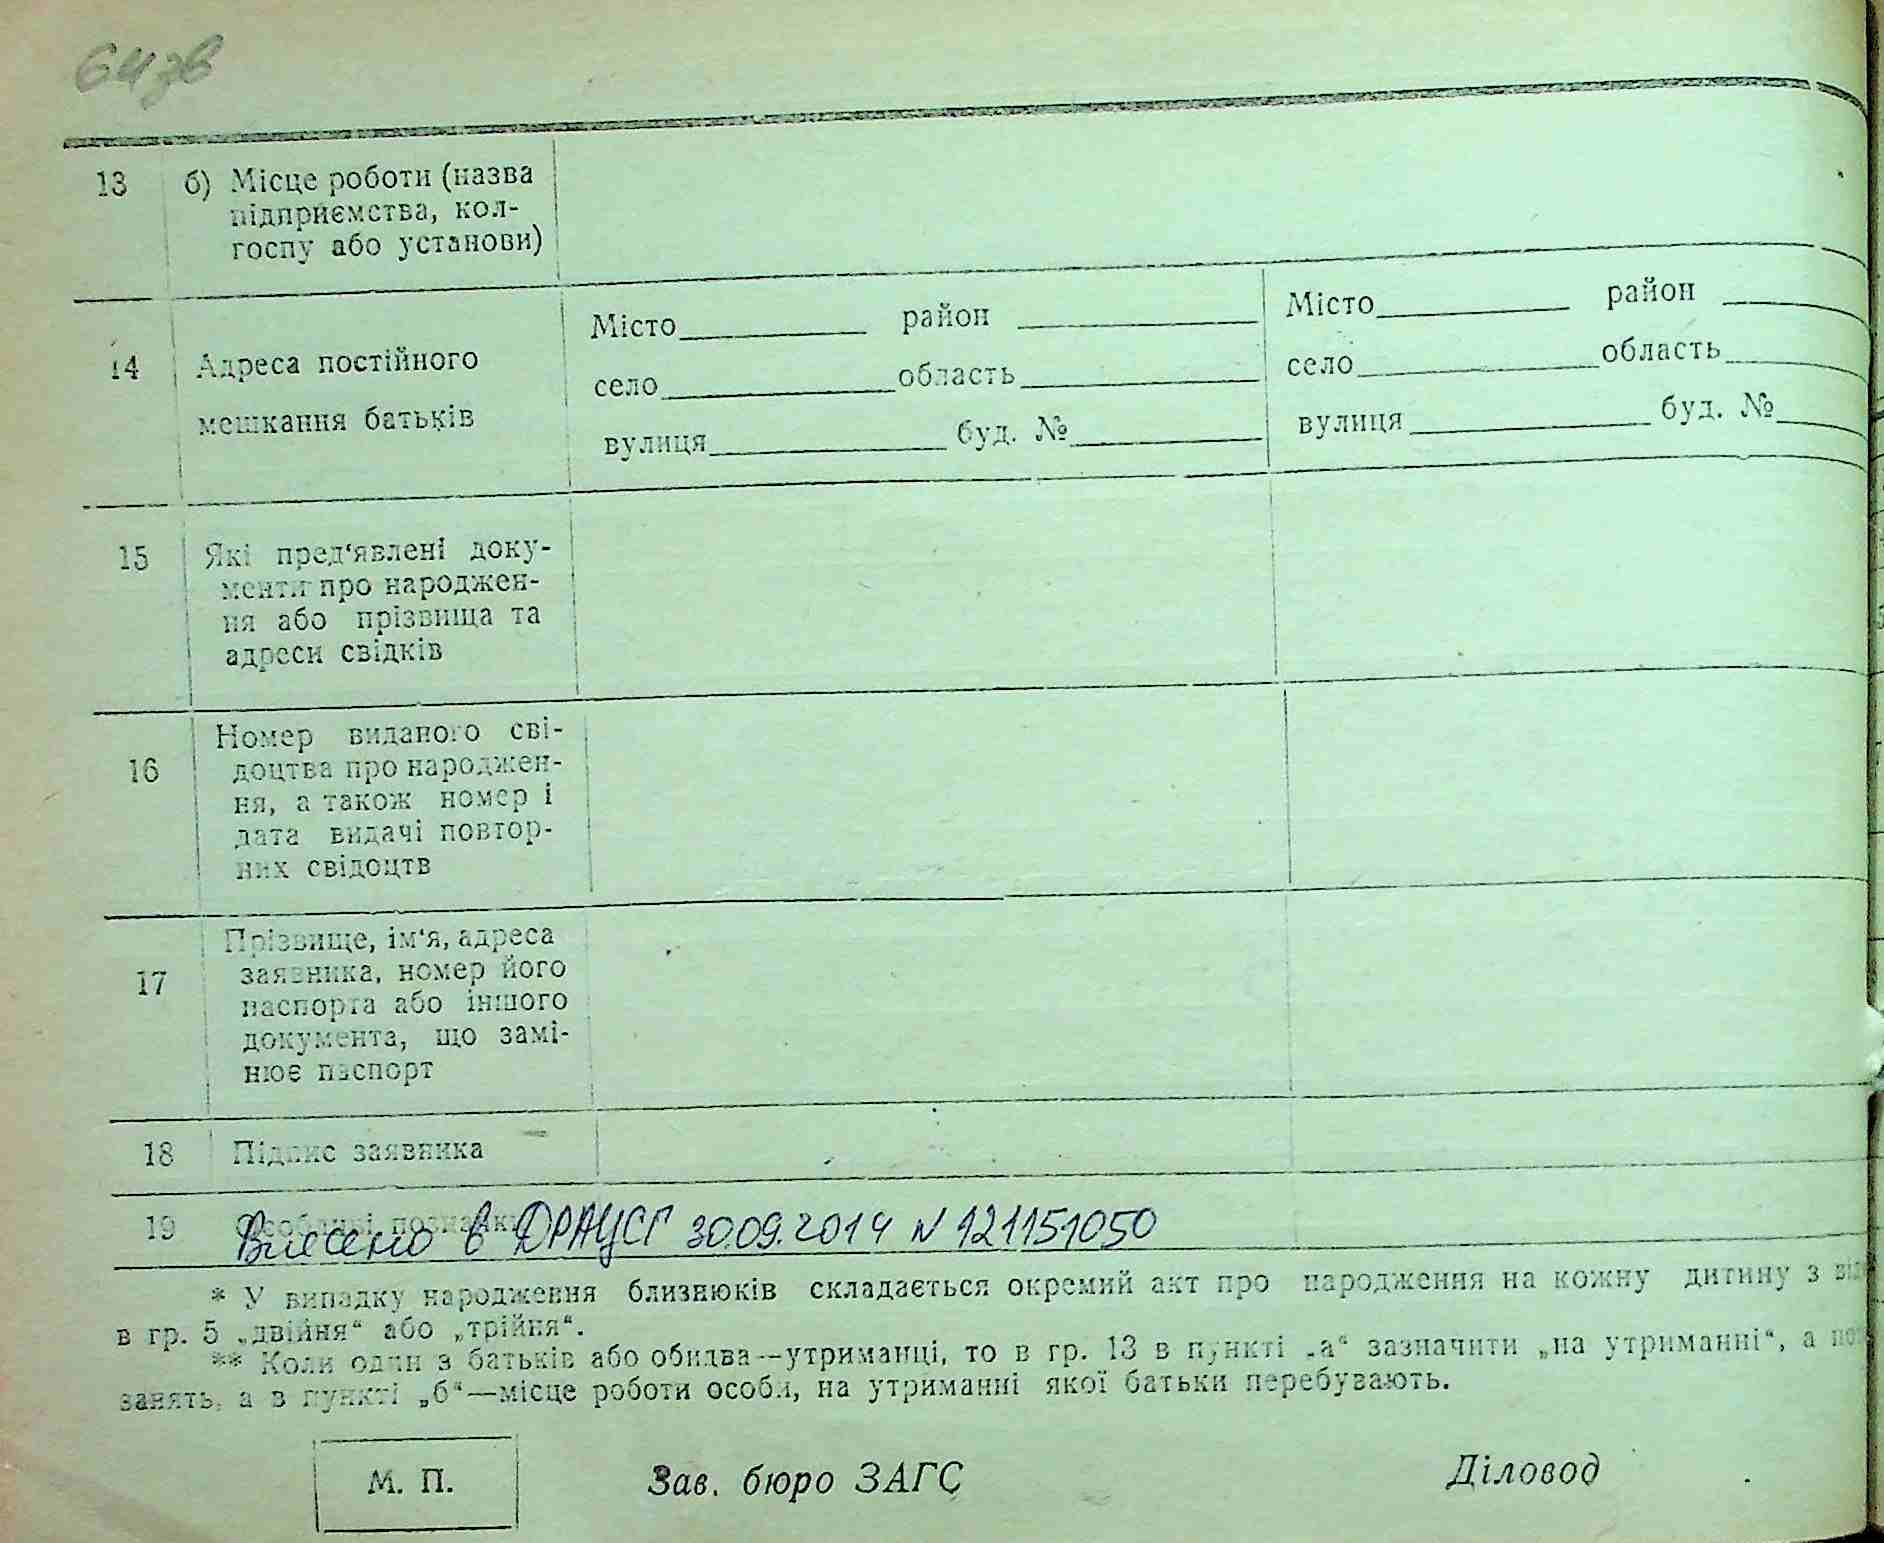 64 зв
13 б) Місце роботи (назва
підприємства, кол-
госпу або установи)
14 Адреса постійного
мешкання батьків
Місто район
село область
вулиця буд. №
Місто район
село область
вулиця буд. №
15 Які пред‘явлені доку-
менти про народжен-
ня або прізвища та
адреси свідків
16 Номер виданого сві-
доцтва про народжен-
ня, а також номер і
дата видачі повтор-
них свідоцтв
17 Прізвище, ім‘я, адреса
заявника, номер його
паспорта або іншого
документа, що замі-
нює паспорт
18 Підпис заявника
19 Особливі позначки
Внесено в ДРАЦСГ 30.09.2014 N 121151050
* У випадку народження близнюків складається окремий акт про народження на кожну дитину з
в гр. 5 „двійня“ або „трійня“.
** Коли один з батьків або обидва—утриманці, то в гр. 13 в пункті „а“ зазначити „на утриманні“, а
занять, а в пункті „б“—місце роботи особи, на утриманні якої батьки перебувають.
М. П. Зав. бюро ЗАГС Діловод